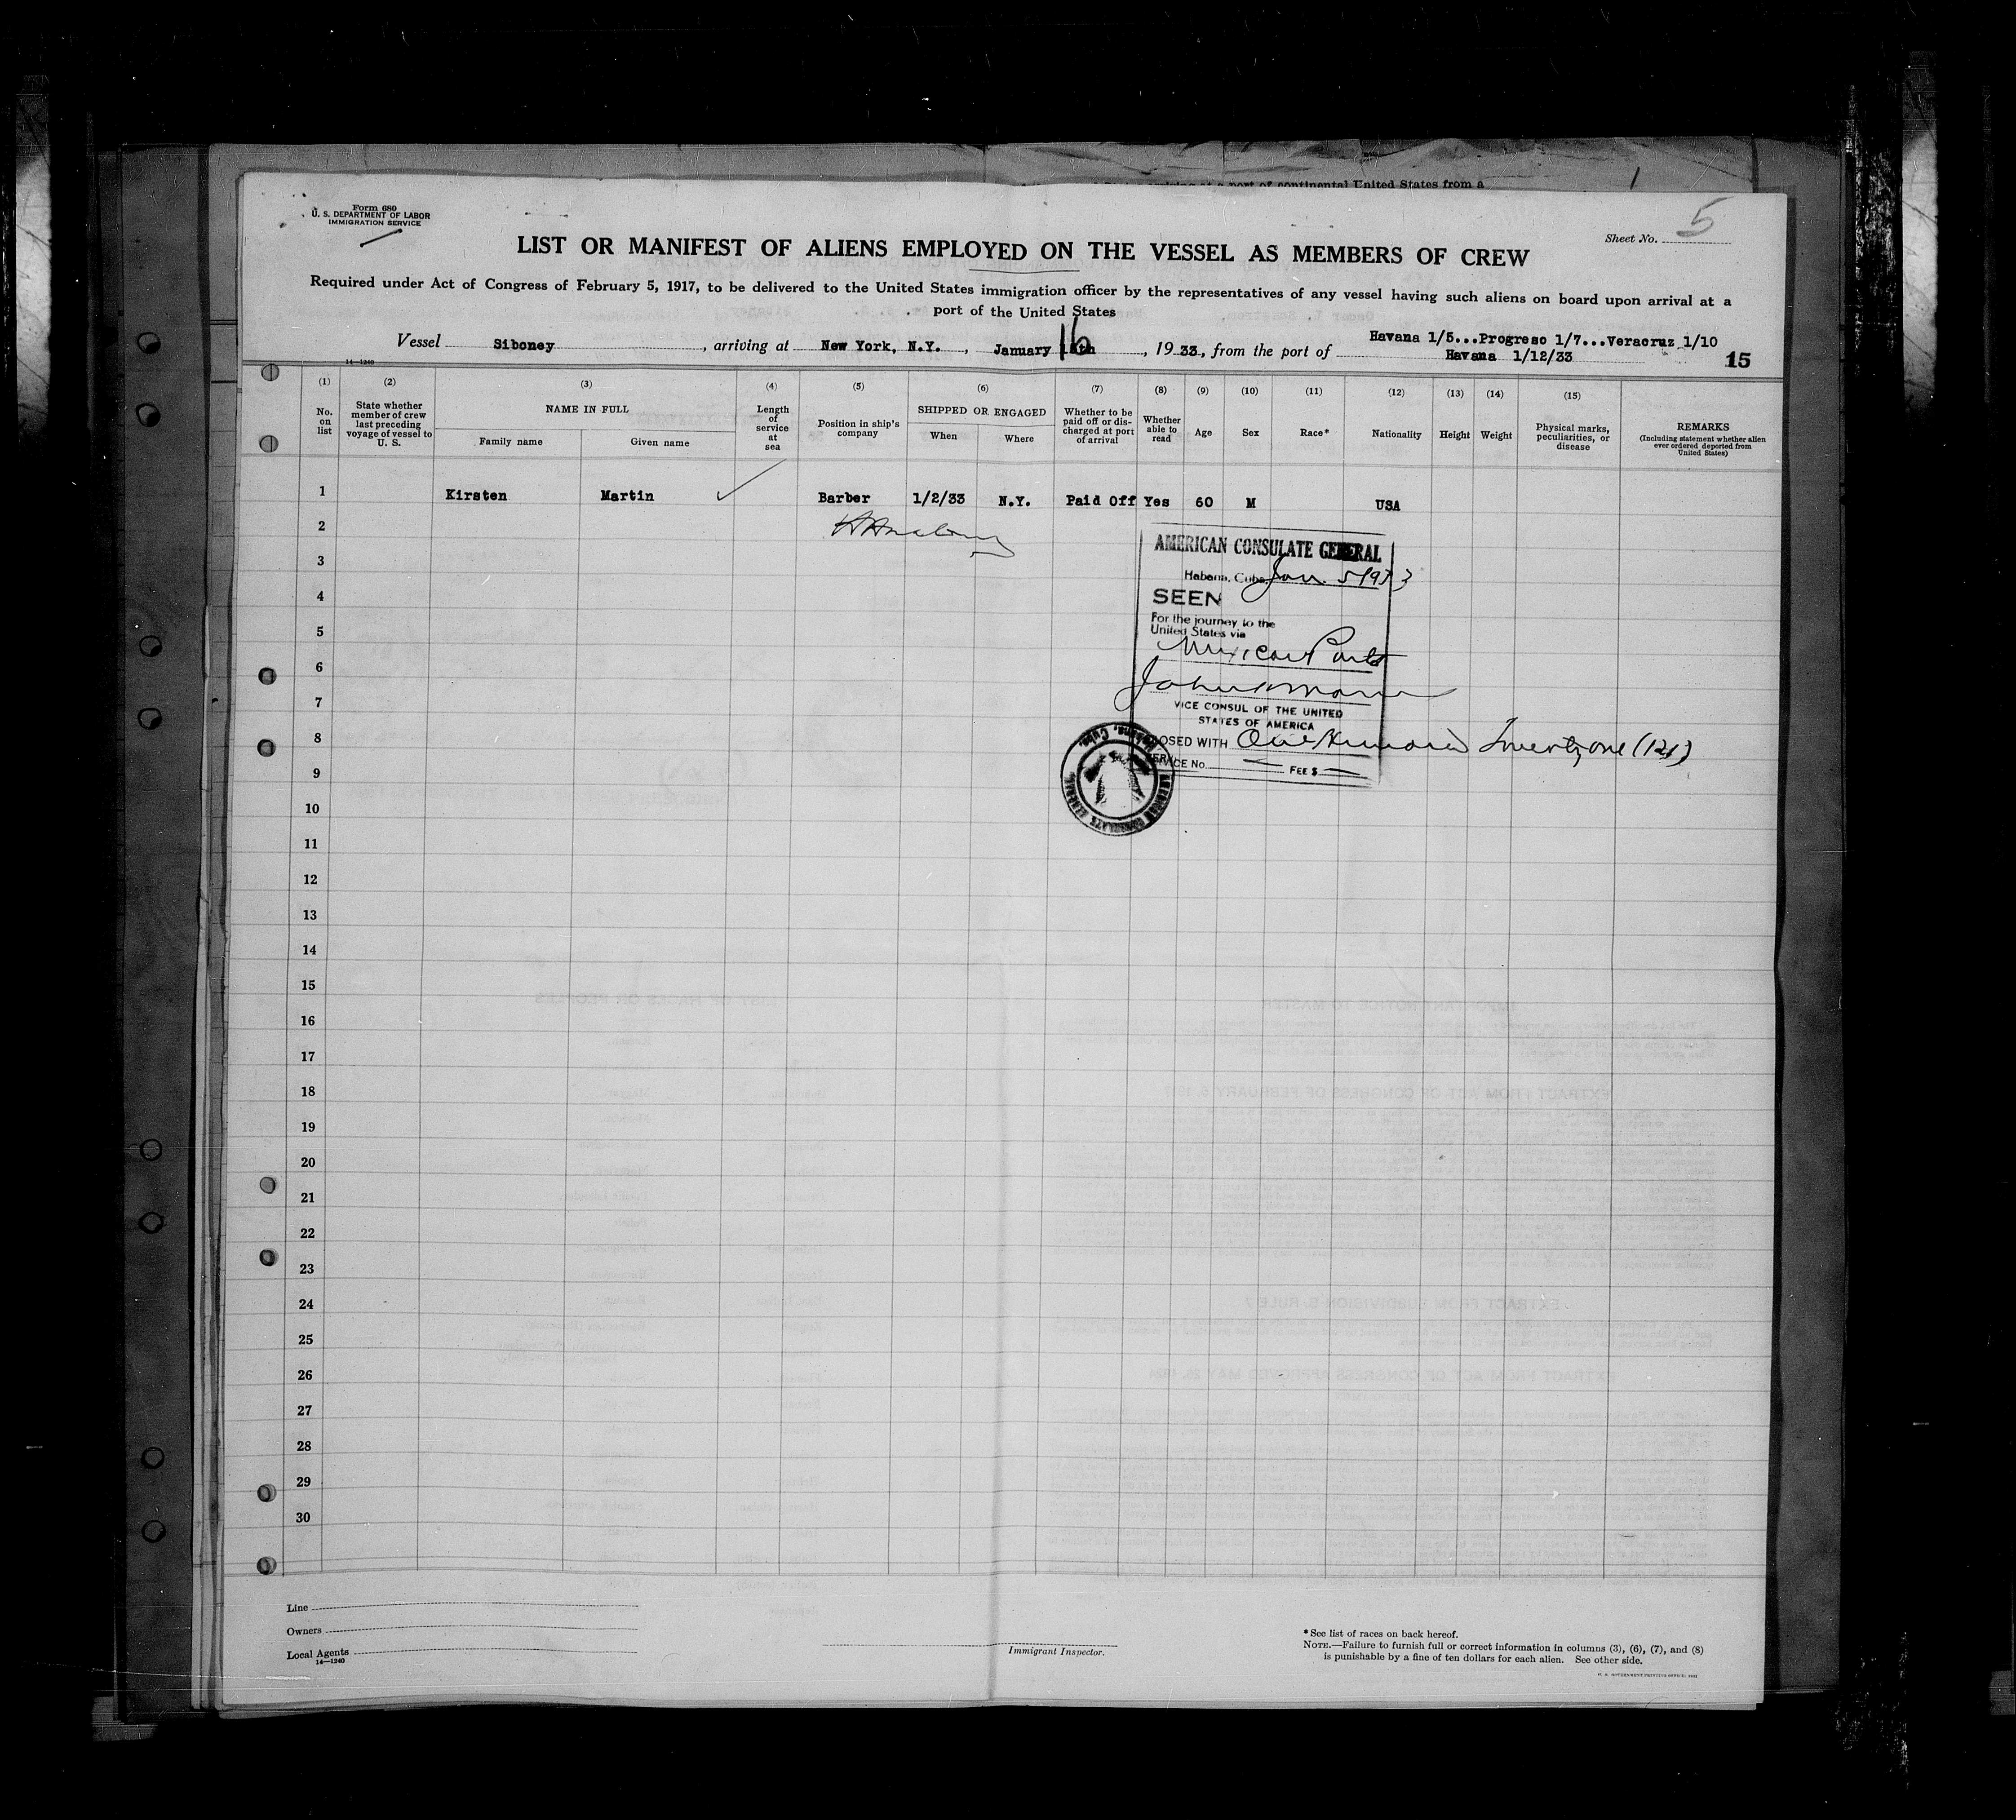 Form 680
U. S. DEPARTMENT OF LABOR
IMMIGRATION SERVICE
Sheet No. 5
LIST OR MANIFEST OF ALIENS EMPLOYED ON THE VESSEL AS MEMBERS OF CREW
Required under Act of Congress of February 5, 1917, to be delivered to the United States immigration officer by the representatives of any vessel having such aliens on board upon arrival at a
port of the United States
Vessel Siboney, arriving at New York, N.Y., January 16th, 1933, from the port of Havana 1/5...Progreso 1/7...Veracruz 1/10
Havana 1/12/33
15
14—1240
(1) (2) (3) (4) (5) (6) (7) (8) (9) (10) (11) (12) (13) (14) (15)
No. on list
State whether member of crew last preceding voyage of vessel to U. S.
NAME IN FULL
Family name
Given name
Length of service at sea
Position in ship's company
SHIPPED OR ENGAGED
When
Where
Whether to be paid off or discharged at port of arrival
Whether able to read
Age
Sex
Race*
Nationality
Height
Weight
Physical marks, peculiarities, or disease
REMARKS
(Including statement whether alien ever ordered deported from United States)
1 Kirsten Martin Barber 1/2/33 N.Y. Paid Off Yes 60 M USA
2
3
4
5
6
7
8
9
10
11
12
13
14
15
16
17
18
19
20
21
22
23
24
25
26
27
28
29
30
AMERICAN CONSULATE GENERAL
Habana, Cuba, Jan. 5 1933
SEEN
For the journey to the
United States via
Mexican Ports
VICE CONSUL OF THE UNITED
STATES OF AMERICA
OSED WITH One Hundred Twenty one (121)
SERVICE No. FEE $
AMERICAN CONSULATE GENERAL
Habana, Cuba.
Line
Owners
Local Agents
14—1240
Immigrant Inspector.
*See list of races on back hereof.
NOTE.—Failure to furnish full or correct information in columns (3), (6), (7), and (8)
is punishable by a fine of ten dollars for each alien. See other side.